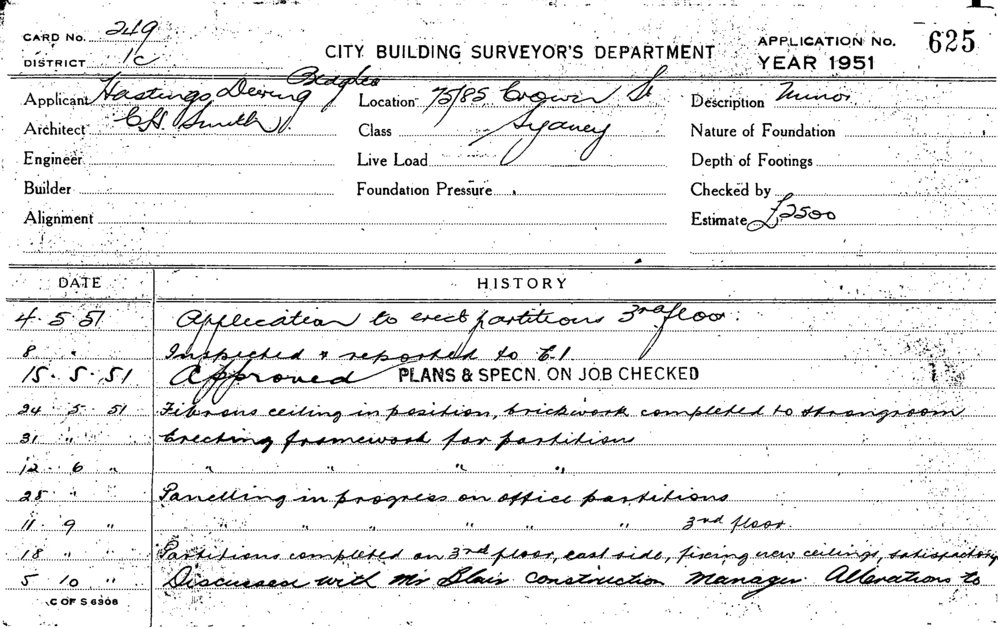 CARD No. 249
DISTRICT 1c
CITY BUILDING SURVEYOR'S DEPARTMENT
APPLICATION No. 625
YEAR 1951
Applicant Hastings Deering
Location 75/85 Crown St
Sydney
Description Minor
Architect C.H. Smith
Class
Nature of Foundation
Engineer
Live Load
Depth of Footings
Builder
Foundation Pressure
Checked by
Alignment
Estimate £2500
DATE HISTORY
4. 5. 51 Application to erect partitions 3rd floor.
8 " Inspected & reported to C.1
15. 5. 51 Approved PLANS & SPECN. ON JOB CHECKED
24 5 51 Fibrous ceiling in position, brickwork completed to strongroom
31 " Erecting framework for partition
12 6 " " " " "
28 " " Panelling in progress on office partitions
11 9 " " " " " " 3rd floor.
18 " " Partitions completed on 3rd floor, east side, fixing new ceilings, satisfactory
5 10 " Discussed with Mr Blair Construction Manager Alterations to
C OF S 6308